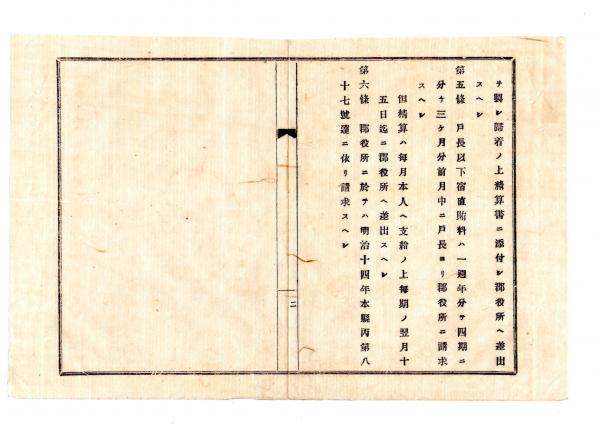 ヲ製シ請着ノ上精算書ニ添付シ郡役所ヘ差出
スヘシ
第五條 戸長以下宿直賄料ハ一週年分ヲ四期ニ
分チ三ケ月分前月中ニ戸長ヨリ郡役所ニ請求
スヘシ
但精算ハ毎月本人ヘ支給ノ上毎期ノ翌月十
五日迄ニ郡役所ヘ差出スヘシ
第六條 郡役所ニ於テハ明治十四年本縣丙第八
十七號達ニ依リ請求スヘシ
二